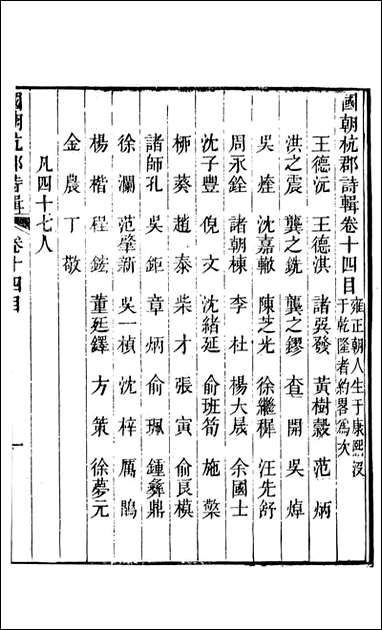 國朝杭郡詩輯卷十四目
雍正朝人生于康熙沒
于乾隆者約畧爲次
王德沅 王德淇 諸㢲發 黃樹穀 范炳
洪之震 龔之銑 龔之鏐 查開 吳焯
吳煃 沈嘉轍 陳芝光 徐繼穉 汪先舒
周永銓 諸朝棟 李杜 楊大晟 余國士
沈子豐 倪文 沈緒延 俞班筍 施檠
桺葵 趙泰 柴才 張寅 俞良模
諸師孔 吳鉅 章炳 俞珮 鍾彝鼎
徐瀾 范肇新 吳一楨 沈梓 厲鶚
楊楷 程鉽 董廷鐸 方策 徐夢元
金農 丁敬
凡四十七人
國朝杭郡詩輯
卷十四目
一